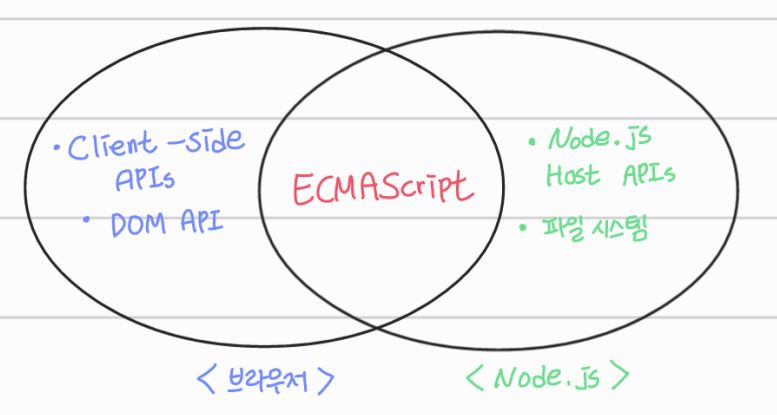 • Client-side
APIs
• DOM API
ECMAScript
• Node.js
Host APIs
• 파일 시스템
<브라우저>
<Node.js>